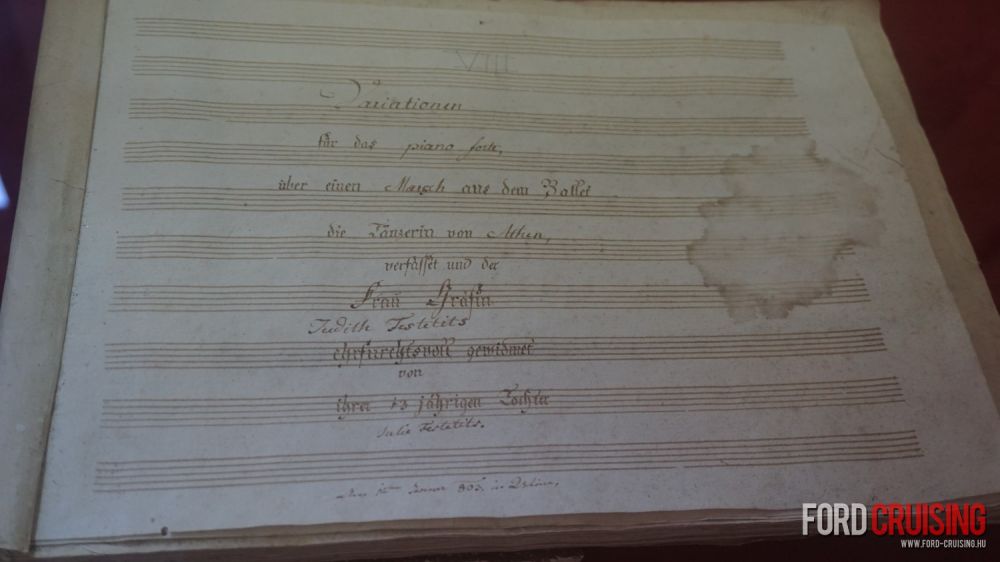 VIII
Variationen
für das piano forte,
über einen Marsch aus dem Ballet
die Tänzerin von Athen,
verfasset und der
Frau Gräfin
Judith Festetits
ehrfurchtsvoll gewidmet
von
ihrer 13 jährigen Tochter
Julie Festetits.
Den 1ten 805. in
FORD CRUISING
WWW.FORD-CRUISING.HU